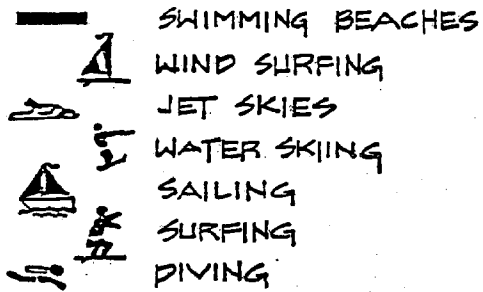 SWIMMING BEACHES
WIND SURFING
JET SKIES
WATER SKIING
SAILING
SURFING
DIVING